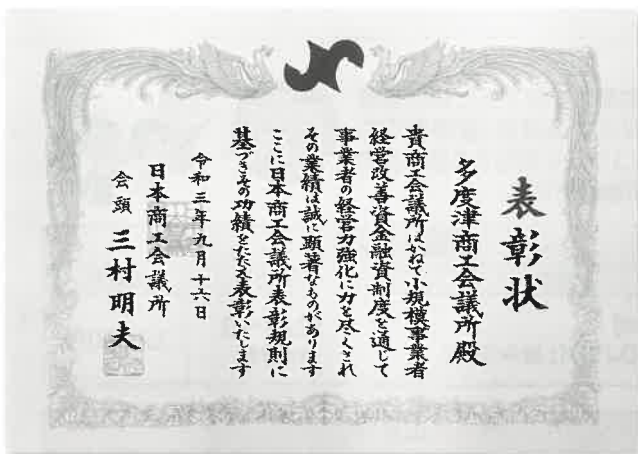 表彰状
多度津商工会議所殿
貴商工会議所はかねて小規模事業者
経営改善資金融資制度を通じて
事業者の経営力強化に力を尽くされ
その業績は誠に顕著なものがあります
ここに日本商工会議所表彰規則に
基づきその功績をたたえ表彰いたします
令和三年九月十六日
日本商工会議所
会頭 三村明夫